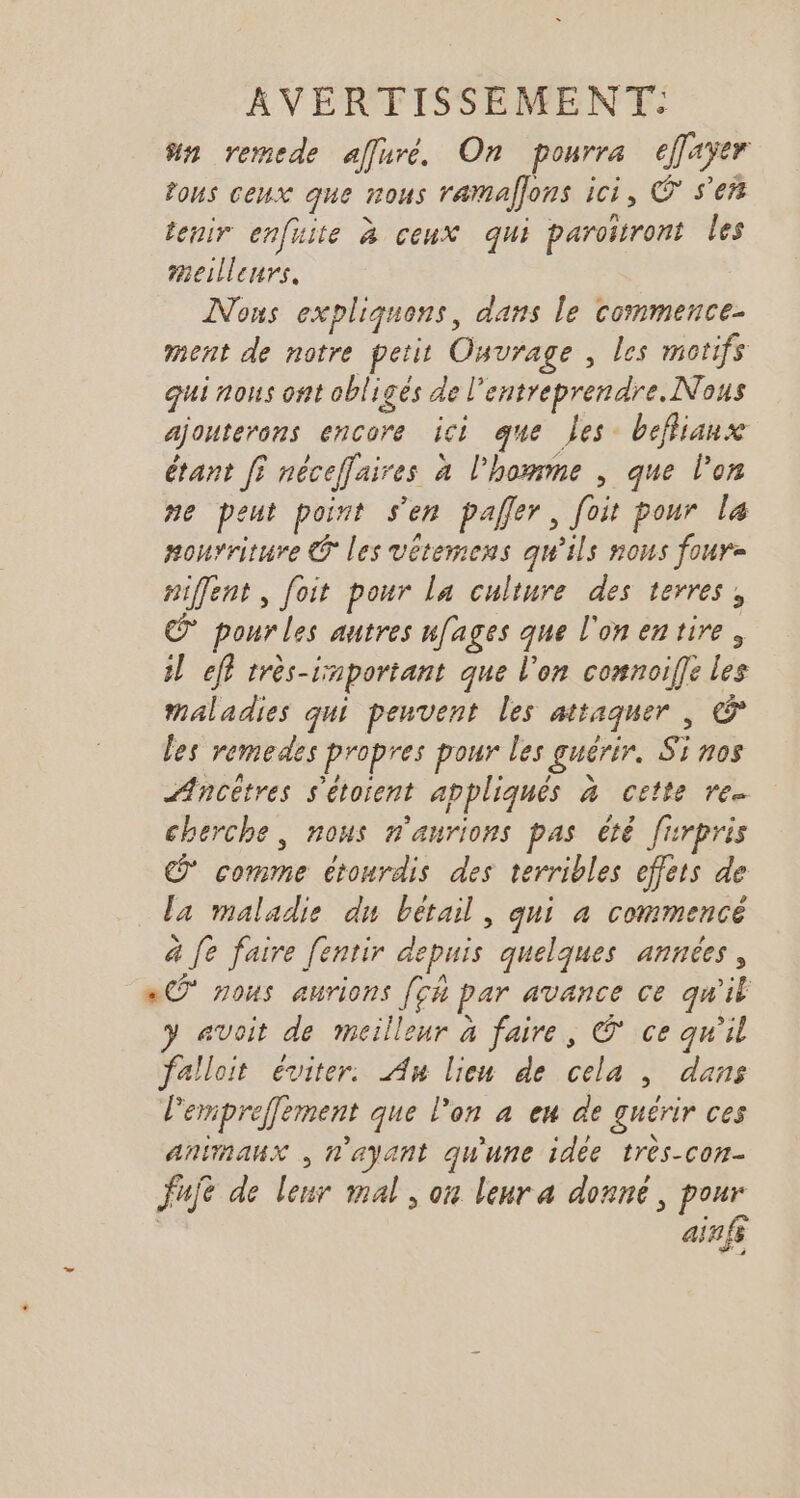 AVERTISSEMENT.
un remede aſſuré. On pourra eſſayer
tous ceux que nous ramaſſons ici, & s'en
tenir enſuite à ceux qui paroîtront les
meilleurs.
Nous expliquons, dans le commence-
ment de notre petit Ouvrage, les motifs
qui nous ont obligés de l'entreprendre. Nous
ajouterons encore ici que les beſtiaux
étant ſi néceſſaires à l'homme, que l'on
ne peut point s'en paſſer, ſoit pour la
nourriture & les vêtemens qu'ils nous four-
niſſent, ſoit pour la culture des terres,
& pour les autres uſages que l'on en tire,
il eſt très-important que l'on connoiſſe les
maladies qui peuvent les attaquer, &
les remedes propres pour les guérir. Si nos
Ancêtres s'étoient appliqués à cette re-
cherche, nous n'aurions pas été ſurpris
& comme étourdis des terribles effets de
la maladie du bétail, qui a commencé
à ſe faire ſentir depuis quelques années,
& nous aurions ſçû par avance ce qu'il
y avoit de meilleur à faire, & ce qu'il
falloit éviter. Au lieu de cela, dans
l'empreſſement que l'on a eu de guérir ces
animaux, n'ayant qu'une idée très-con-
fuſe de leur mal, on leur a donné, pour
ainſi